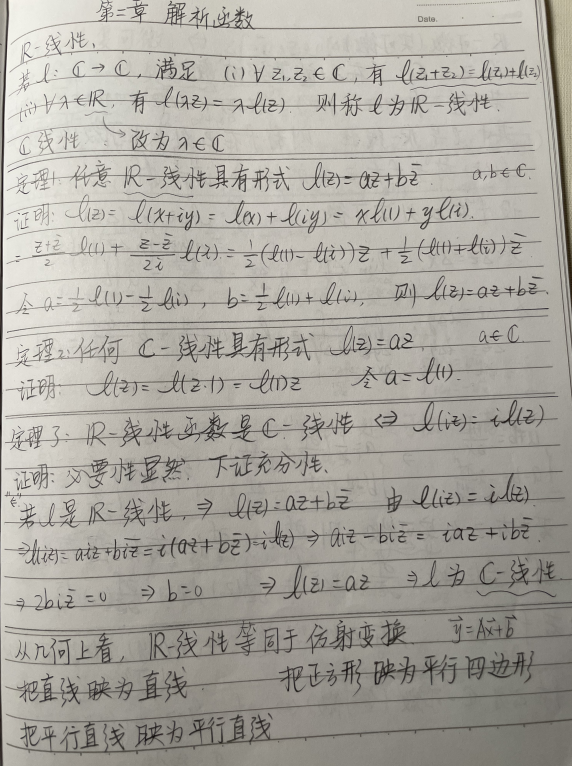 第二章 解析函数
Date.
R-线性.
若l: C→C, 满足 (i) ∀z₁,z₂∈C, 有 l(z₁+z₂)=l(z₁)+l(z₂)
(ii) ∀λ∈R, 有 l(λz)=λl(z). 则称l为R-线性.
C线性 → 改为λ∈C
定理1: 任意 R-线性具有形式 l(z)=az+bz̄ a,b∈C.
证明: l(z)=l(x+iy)=l(x)+l(iy)=xl(1)+yl(i).
=(z+z̄)/2 l(1)+(z-z̄)/2i l(i)=½(l(1)-l(i))z+½(l(1)+l(i))z̄
令a=½l(1)-½l(i), b=½l(1)+l(i), 则 l(z)=az+bz̄.
定理2: 任何 C-线性具有形式 l(z)=az, a∈C.
证明: l(z)=l(z·1)=l(1)z 令a=l(1).
定理3: R-线性函数是C-线性 ⇔ l(iz)=il(z)
证明: 必要性显然. 下证充分性.
"⇐"
若l是R-线性, ⇒ l(z)=az+bz̄ 由 l(iz)=il(z)
⇒l(iz)=aiz+biz̄=i(az+bz̄)=il(z) ⇒ aiz-biz̄=iaz+ibz̄.
⇒ 2biz̄=0 ⇒ b=0 ⇒ l(z)=az ⇒ l为 C-线性
从几何上看, R-线性等同于仿射变换 y⃗=Ax⃗+b⃗
把直线映为直线 把正方形映为平行四边形
把平行直线映为平行直线